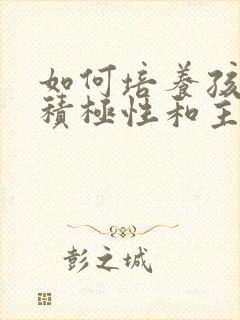 如何培养孩
積極性和主
彭之城